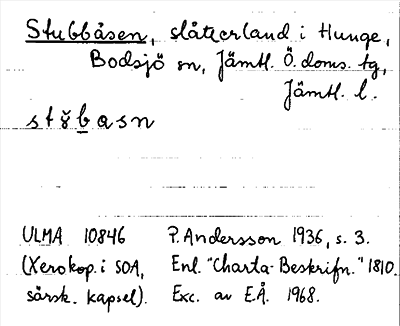 Stubbåsen, slåtterland i Hunge,
Bodsjö sn, Jämtl. Ö. doms. tg,
Jämtl. l.
stŏ̤basn
ULMA 10846 P. Andersson 1936, s. 3.
(Xerokop. i SOA, Enl. "Charta-Beskrifn." 1810.
särsk. kapsel). Exc. av E.Å. 1968.